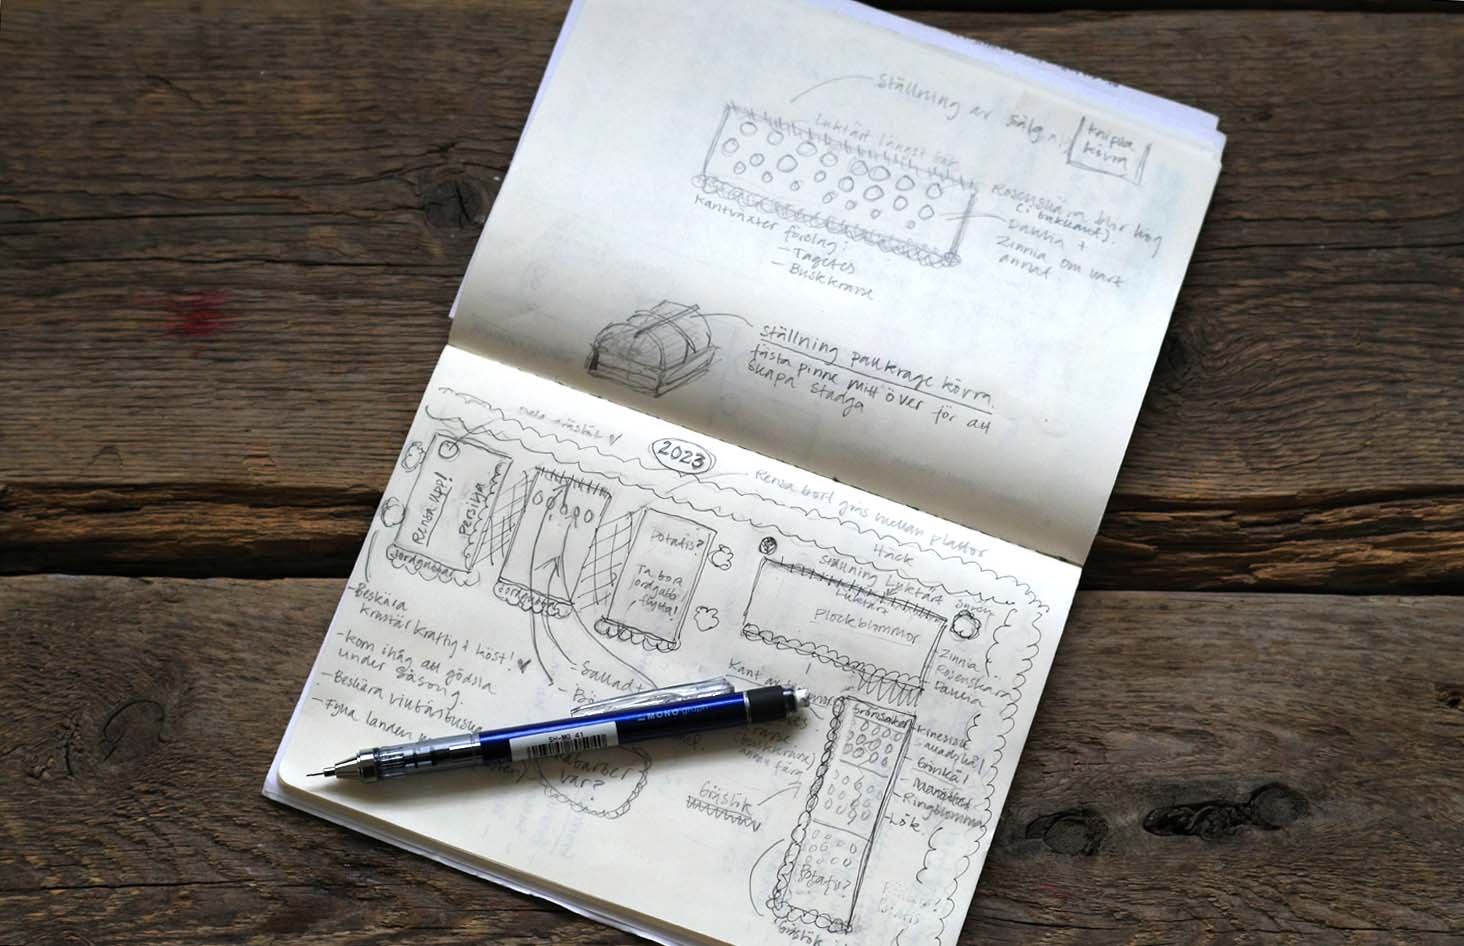 Ställning av Sälg
knippa
körra
Luktärt längst bak
Rosenskära blir hög
(i bakkant).
Dahlia +
Zinnia om vart
annat
Kantväxter förslag:
- Tagetes
- Buskkrasse
Ställning pallkrage körra.
fästa pinne mitt över för att
skapa stadga
gräslök
2023
Rensa bort gräs mellan plattor
Häck
Rensa upp!
persilja
jordgubbar
jordgubbar
Potatis?
Ta bort
jordgubb
flytta!
Ställning Luktärt
Luktärt
Plockblommor
Zinnia
Rosenskära
Dahlia
- Beskära
kraftigt höst!
- kom ihåg att gödsla
under säsong.
- Beskära vinbärsbuskar
- Fylla landen
- Sallad
Kant av
(buskkrasse)
Gräslök
Grönsaker
- kinesisk
salladskål
- Grönkål
- Morötter
- Ringblomma
- Lök
var?
Potatis?
Gräslök
MONO graph
SH-MG 41